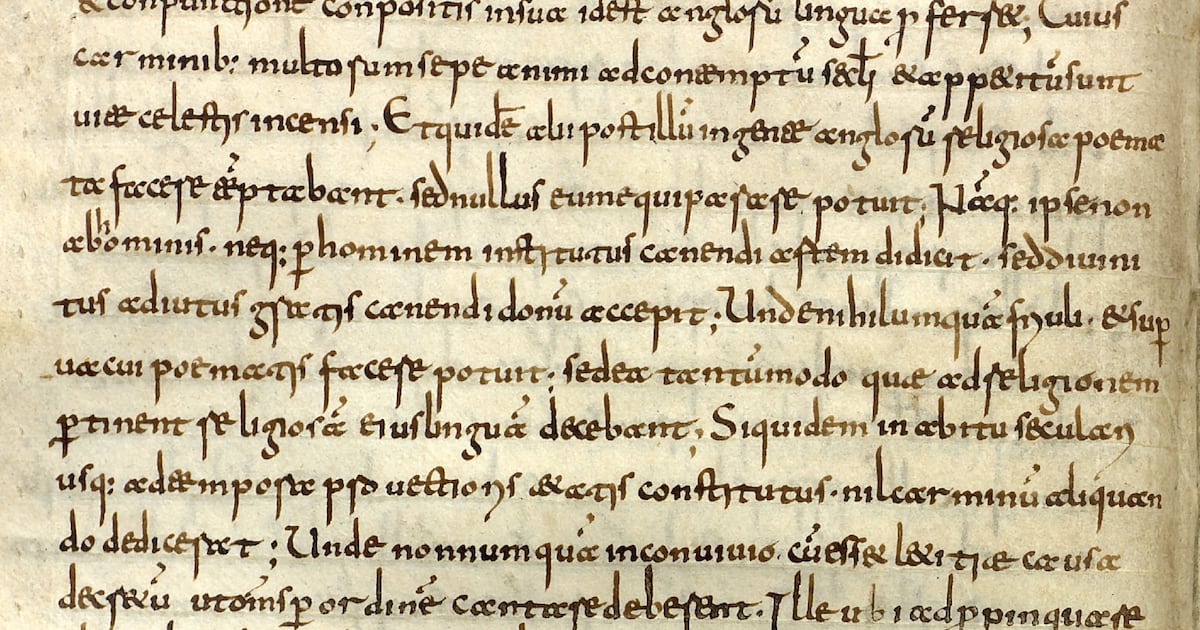 & conpunctione conpositis in sua id est anglorū lingua ꝓferret; Cuius
carminib; multorum sepe animi ad contemptū sæcli & appetitū sunt
uitae celestis incensi; Et quidē alii post illū in gente anglorū religiosa poema
ta facere tēptabant. sed nullus eum equiparare potuit; Nāq; ipse non
ab hominis. neq; ꝑ hominem institutus canendi artem didicit. sed diuini
tus adiutus gratis canendi donū accepit; Unde nihil umquā friuoli. & suꝑ
uacui poematis facere potuit; sed ea tantūmodo quae ad religionem
ꝑtinent religiosā eius linguā decebant; Siquidem in abitu seculari
usq; ad tempora prouectioris aetatis constitutus. nil carminū aliquan
do dedicerat; Unde nonnumquā in conuiuio. cū esset laetitiae causa
decretū ut om̄s ꝑ ordinē cantare deberent. Ille ubi adꝓpinquare